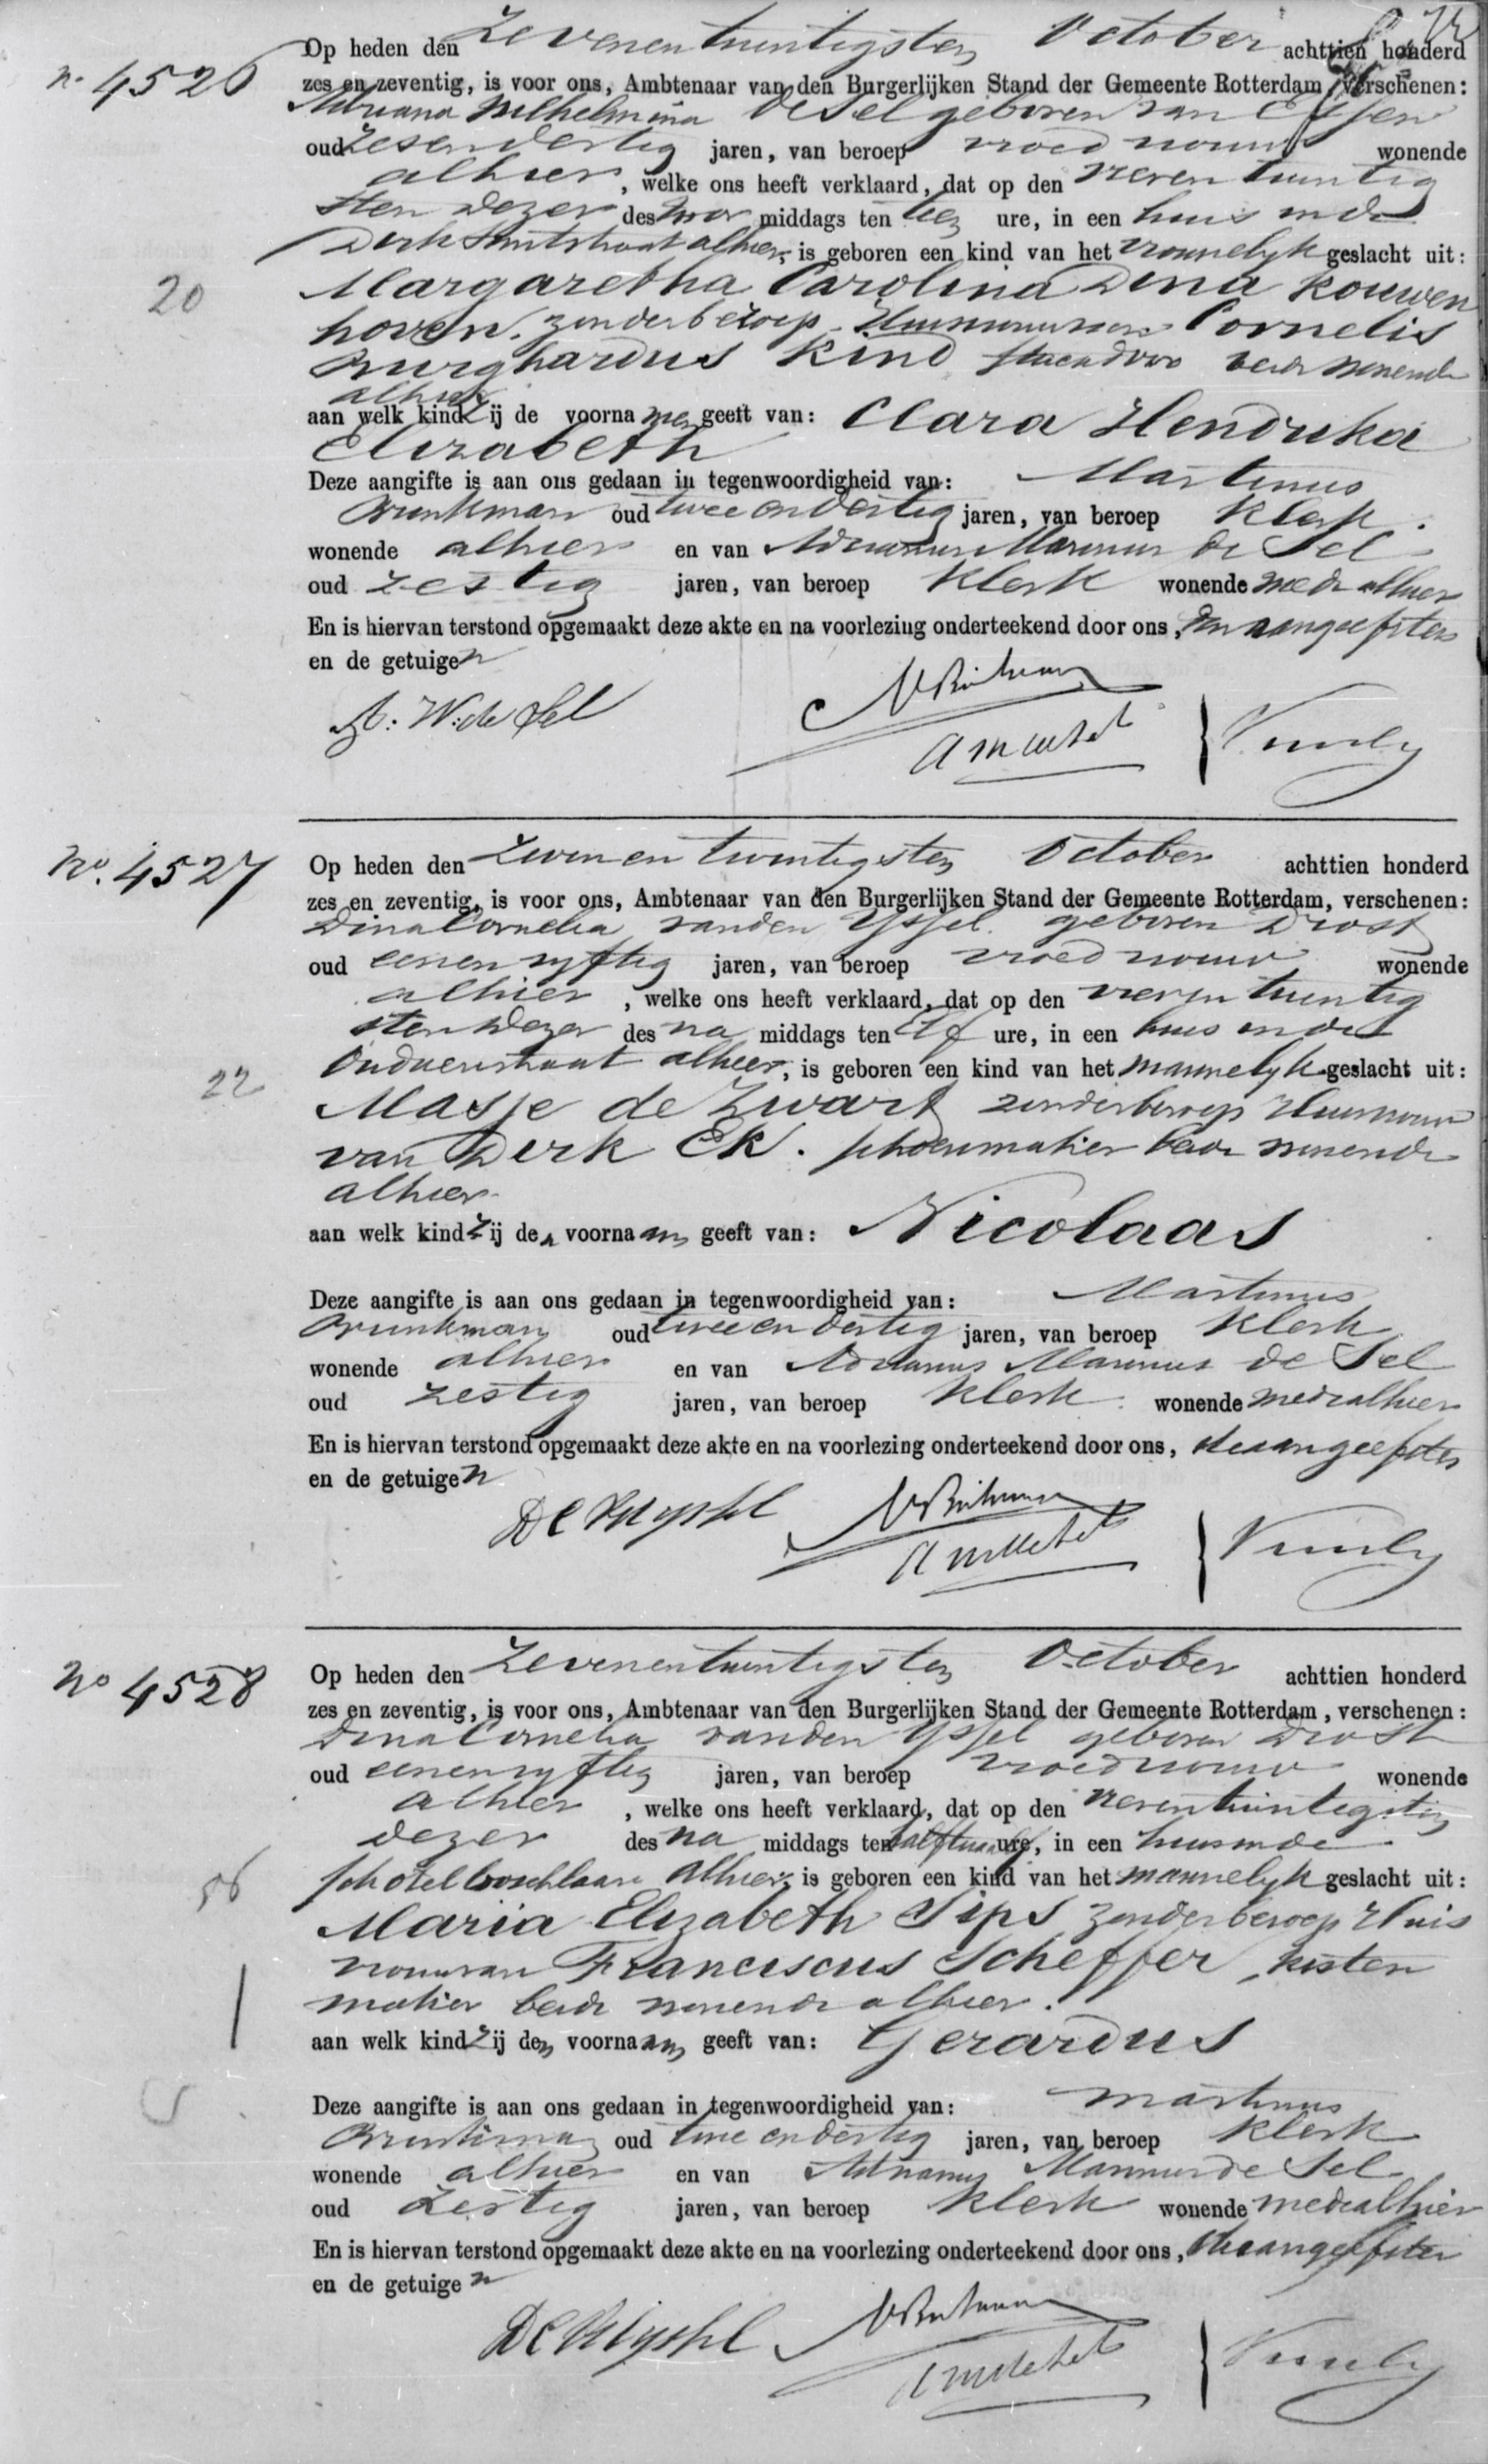 No. 4526
Op heden den Zevenentwintigsten October achttien honderd
zes en zeventig, is voor ons, Ambtenaar van den Burgerlijken Stand der Gemeente Rotterdam, verschenen:
Adriana Wilhelmina de Sel geboren van
oud zesendertig jaren, van beroep vroedvrouw wonende
alhier, welke ons heeft verklaard, dat op den vierentwintig
sten dezer des voor middags ten tien ure, in een huis in de
Dirk Smitstraat alhier, is geboren een kind van het vrouwelijk geslacht uit:
20
Margaretha Carolina Dina Kouwen
hoven. zonder beroep Huisvrouw van Cornelis
Burghardus Kind beide wonende
alhier
aan welk kind zij de voornamen geeft van: Clara Hendrika
Elizabeth
Deze aangifte is aan ons gedaan in tegenwoordigheid van: Martinus
Brinkman oud twee en dertig jaren, van beroep Klerk.
wonende alhier en van Adrianus Marinus de Sel
oud zestig jaren, van beroep Klerk wonende mede alhier
En is hiervan terstond opgemaakt deze akte en na voorlezing onderteekend door ons, de aangeefster
en de getuigen
A: W: de Sel
MBrinkman
AMdeSel
No. 4527
Op heden den Zeven en twintigsten October achttien honderd
zes en zeventig, is voor ons, Ambtenaar van den Burgerlijken Stand der Gemeente Rotterdam, verschenen:
Dina Cornelia van den Yssel geboren Drost
oud eenenvyftig jaren, van beroep vroedvrouw wonende
alhier, welke ons heeft verklaard, dat op den vierentwintig
sten dezer des na middags ten Elf ure, in een huis in de
alhier, is geboren een kind van het mannelyk geslacht uit:
22
Masje de Zwart zonder beroep Huisvrouw
van Derk Ek. schoenmaker beide wonende
alhier
aan welk kind zij den voornaam geeft van: Nicolaas
Deze aangifte is aan ons gedaan in tegenwoordigheid van: Martinus
Brinkman oud twee en dertig jaren, van beroep Klerk
wonende alhier en van Adrianus Marinus de Sel
oud zestig jaren, van beroep Klerk wonende mede alhier
En is hiervan terstond opgemaakt deze akte en na voorlezing onderteekend door ons, de aangeefster
en de getuigen
MBrinkman
AMdeSel
No 4528
Op heden den Zevenentwintigsten October achttien honderd
zes en zeventig, is voor ons, Ambtenaar van den Burgerlijken Stand der Gemeente Rotterdam, verschenen:
Dina Cornelia van den Yssel geboren Drost
oud eenenvyftig jaren, van beroep vroedvrouw wonende
alhier, welke ons heeft verklaard, dat op den vierentwintigsten
dezer des na middags ten half twaalf ure, in een huis in de
alhier, is geboren een kind van het mannelyk geslacht uit:
56
Maria Elizabeth Sips zonder beroep Huis
vrouw van Franciscus Scheffer, kisten
maker beide wonende alhier.
aan welk kind zij den voornaam geeft van: Gerardus
Deze aangifte is aan ons gedaan in tegenwoordigheid van: Martinus
Brinkman oud twee en dertig jaren, van beroep Klerk
wonende alhier en van Adrianus Marinus de Sel
oud Zestig jaren, van beroep Klerk wonende mede alhier
En is hiervan terstond opgemaakt deze akte en na voorlezing onderteekend door ons, de aangeefster
en de getuigen
MBrinkman
AMdeSel